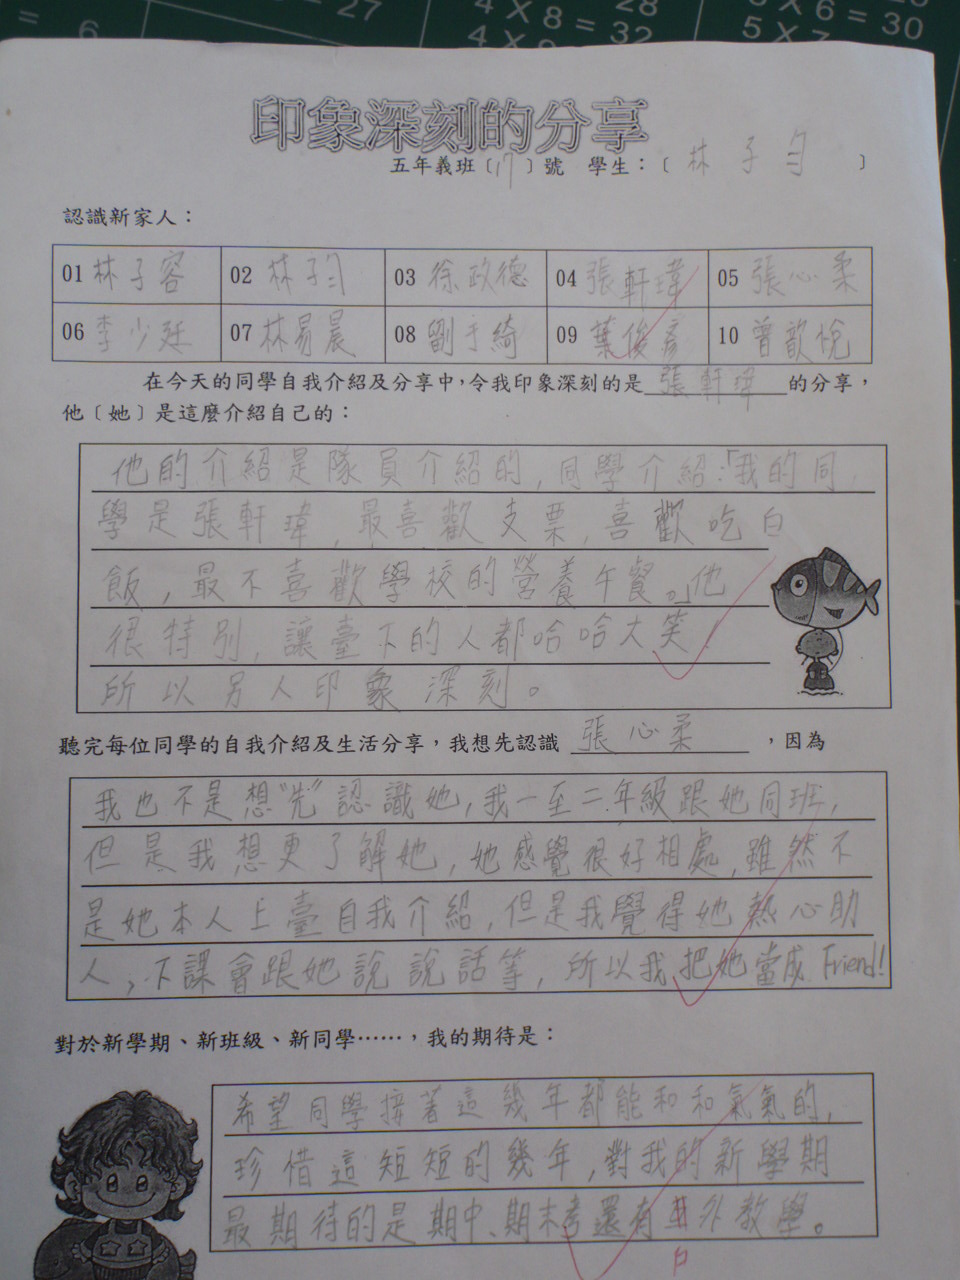 = 27
4 X 8 = 32
28
X 6 = 30
6
4 X 9
5 X 7
印象深刻的分享
五年義班〔17〕號 學生：〔 林子勻 〕
認識新家人：
01 林子容 02 林子勻 03 徐政德 04 張軒瑋 05 張心柔
06 李少廷 07 林易晨 08 劉于綺 09 葉俊彥 10 曾歆悅
在今天的同學自我介紹及分享中，令我印象深刻的是 張軒瑋 的分享，
他〔她〕是這麼介紹自己的：
他的介紹是隊員介紹的，同學介紹：「我的同
學是張軒瑋，最喜歡支票，喜歡吃白
飯，最不喜歡學校的營養午餐。」他
很特別，讓臺下的人都哈哈大笑，
所以另人印象深刻。
聽完每位同學的自我介紹及生活分享，我想先認識 張心柔 ，因為
我也不是想"先"認識她，我一至二年級跟她同班，
但是我想更了解她，她感覺很好相處，雖然不
是她本人上臺自我介紹，但是我覺得她熱心助
人，下課會跟她說說話等，所以我把她當成Friend!
對於新學期、新班級、新同學……，我的期待是：
希望同學接著這幾年都能和和氣氣的，
珍惜這短短的幾年，對我的新學期
最期待的是期中、期末考還有外教學。